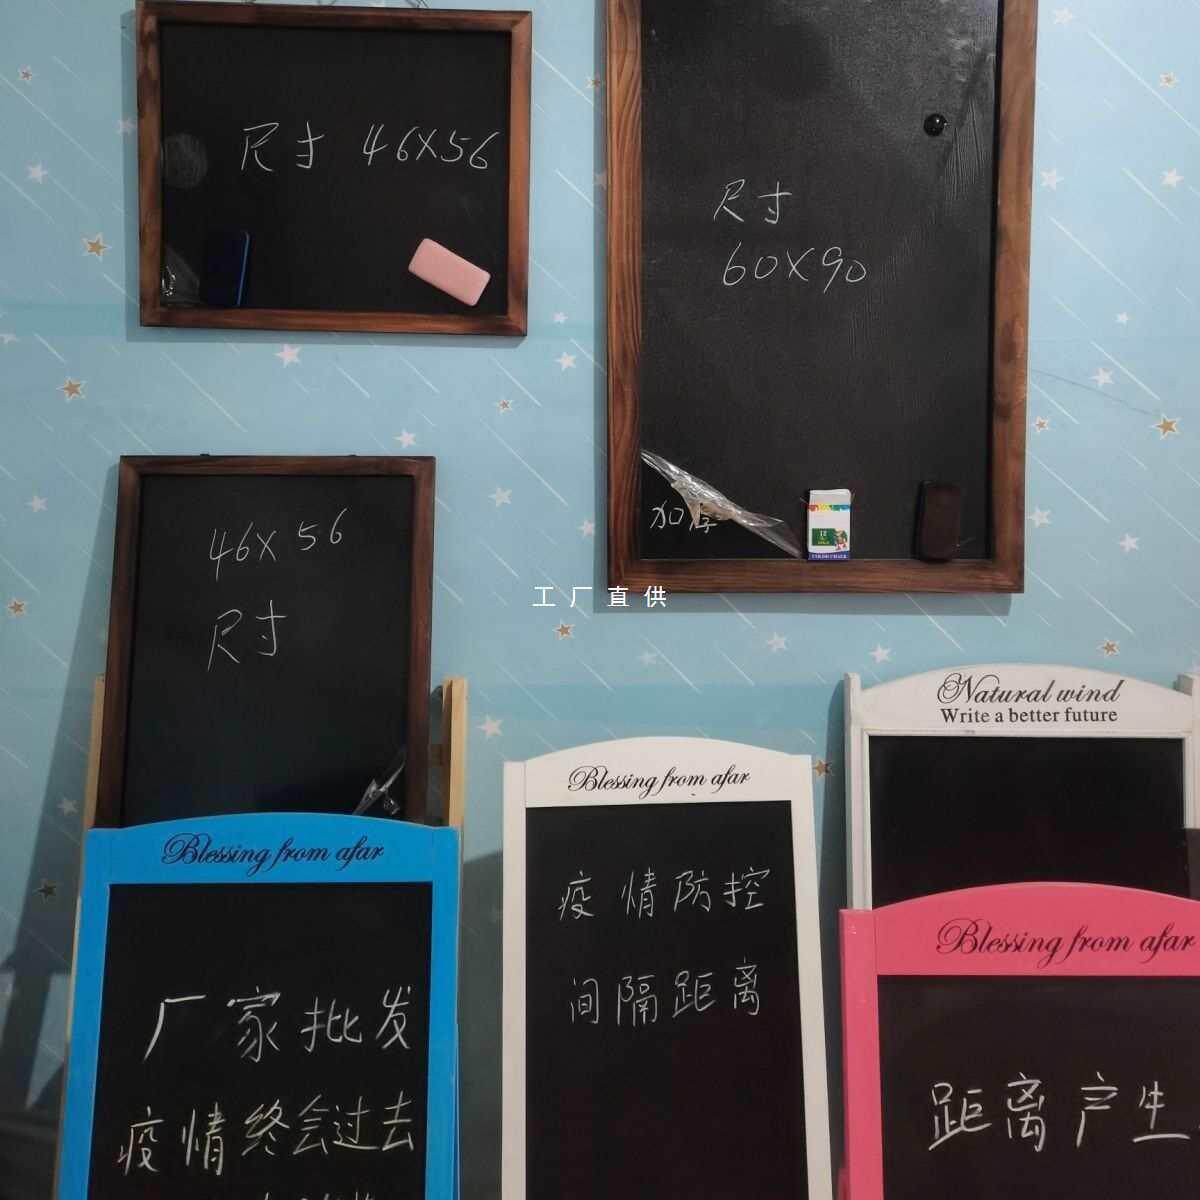 尺寸 46X56
尺寸
60X90
加厚
COLOR CHALK
46X56
尺寸
工厂直供
Natural wind
Write a better future
Blessing from afar
疫情防控
间隔距离
Blessing from afar
厂家批发
疫情终会过去
Blessing from afar
距离产生